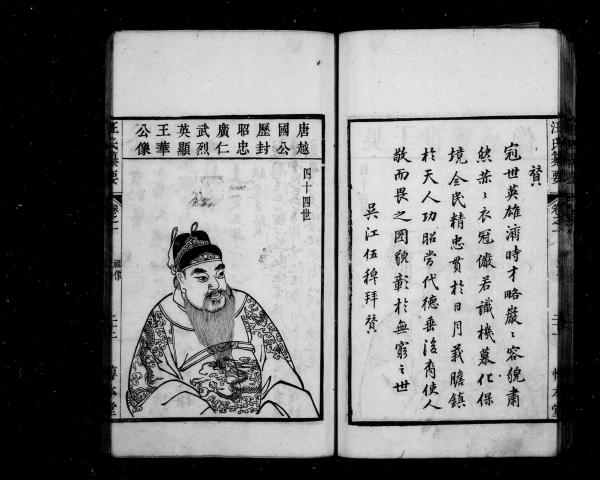 汪氏纂要
卷之一
本堂
贊
冠世英雄濟時才略巖〻容貌肅
然〻衣冠儼若識機慕化保
境全民精忠貫於日月義膽鎮
於天人功昭當代德垂後裔使人
敬而畏之圖貌彰於無窮之世
吳江伍稗拜贊
唐越
國公
歷封
昭忠
廣仁
武烈
英顯
王華
公像
四十四世
汪氏纂要
卷之一
祖像
二十二
惇本堂